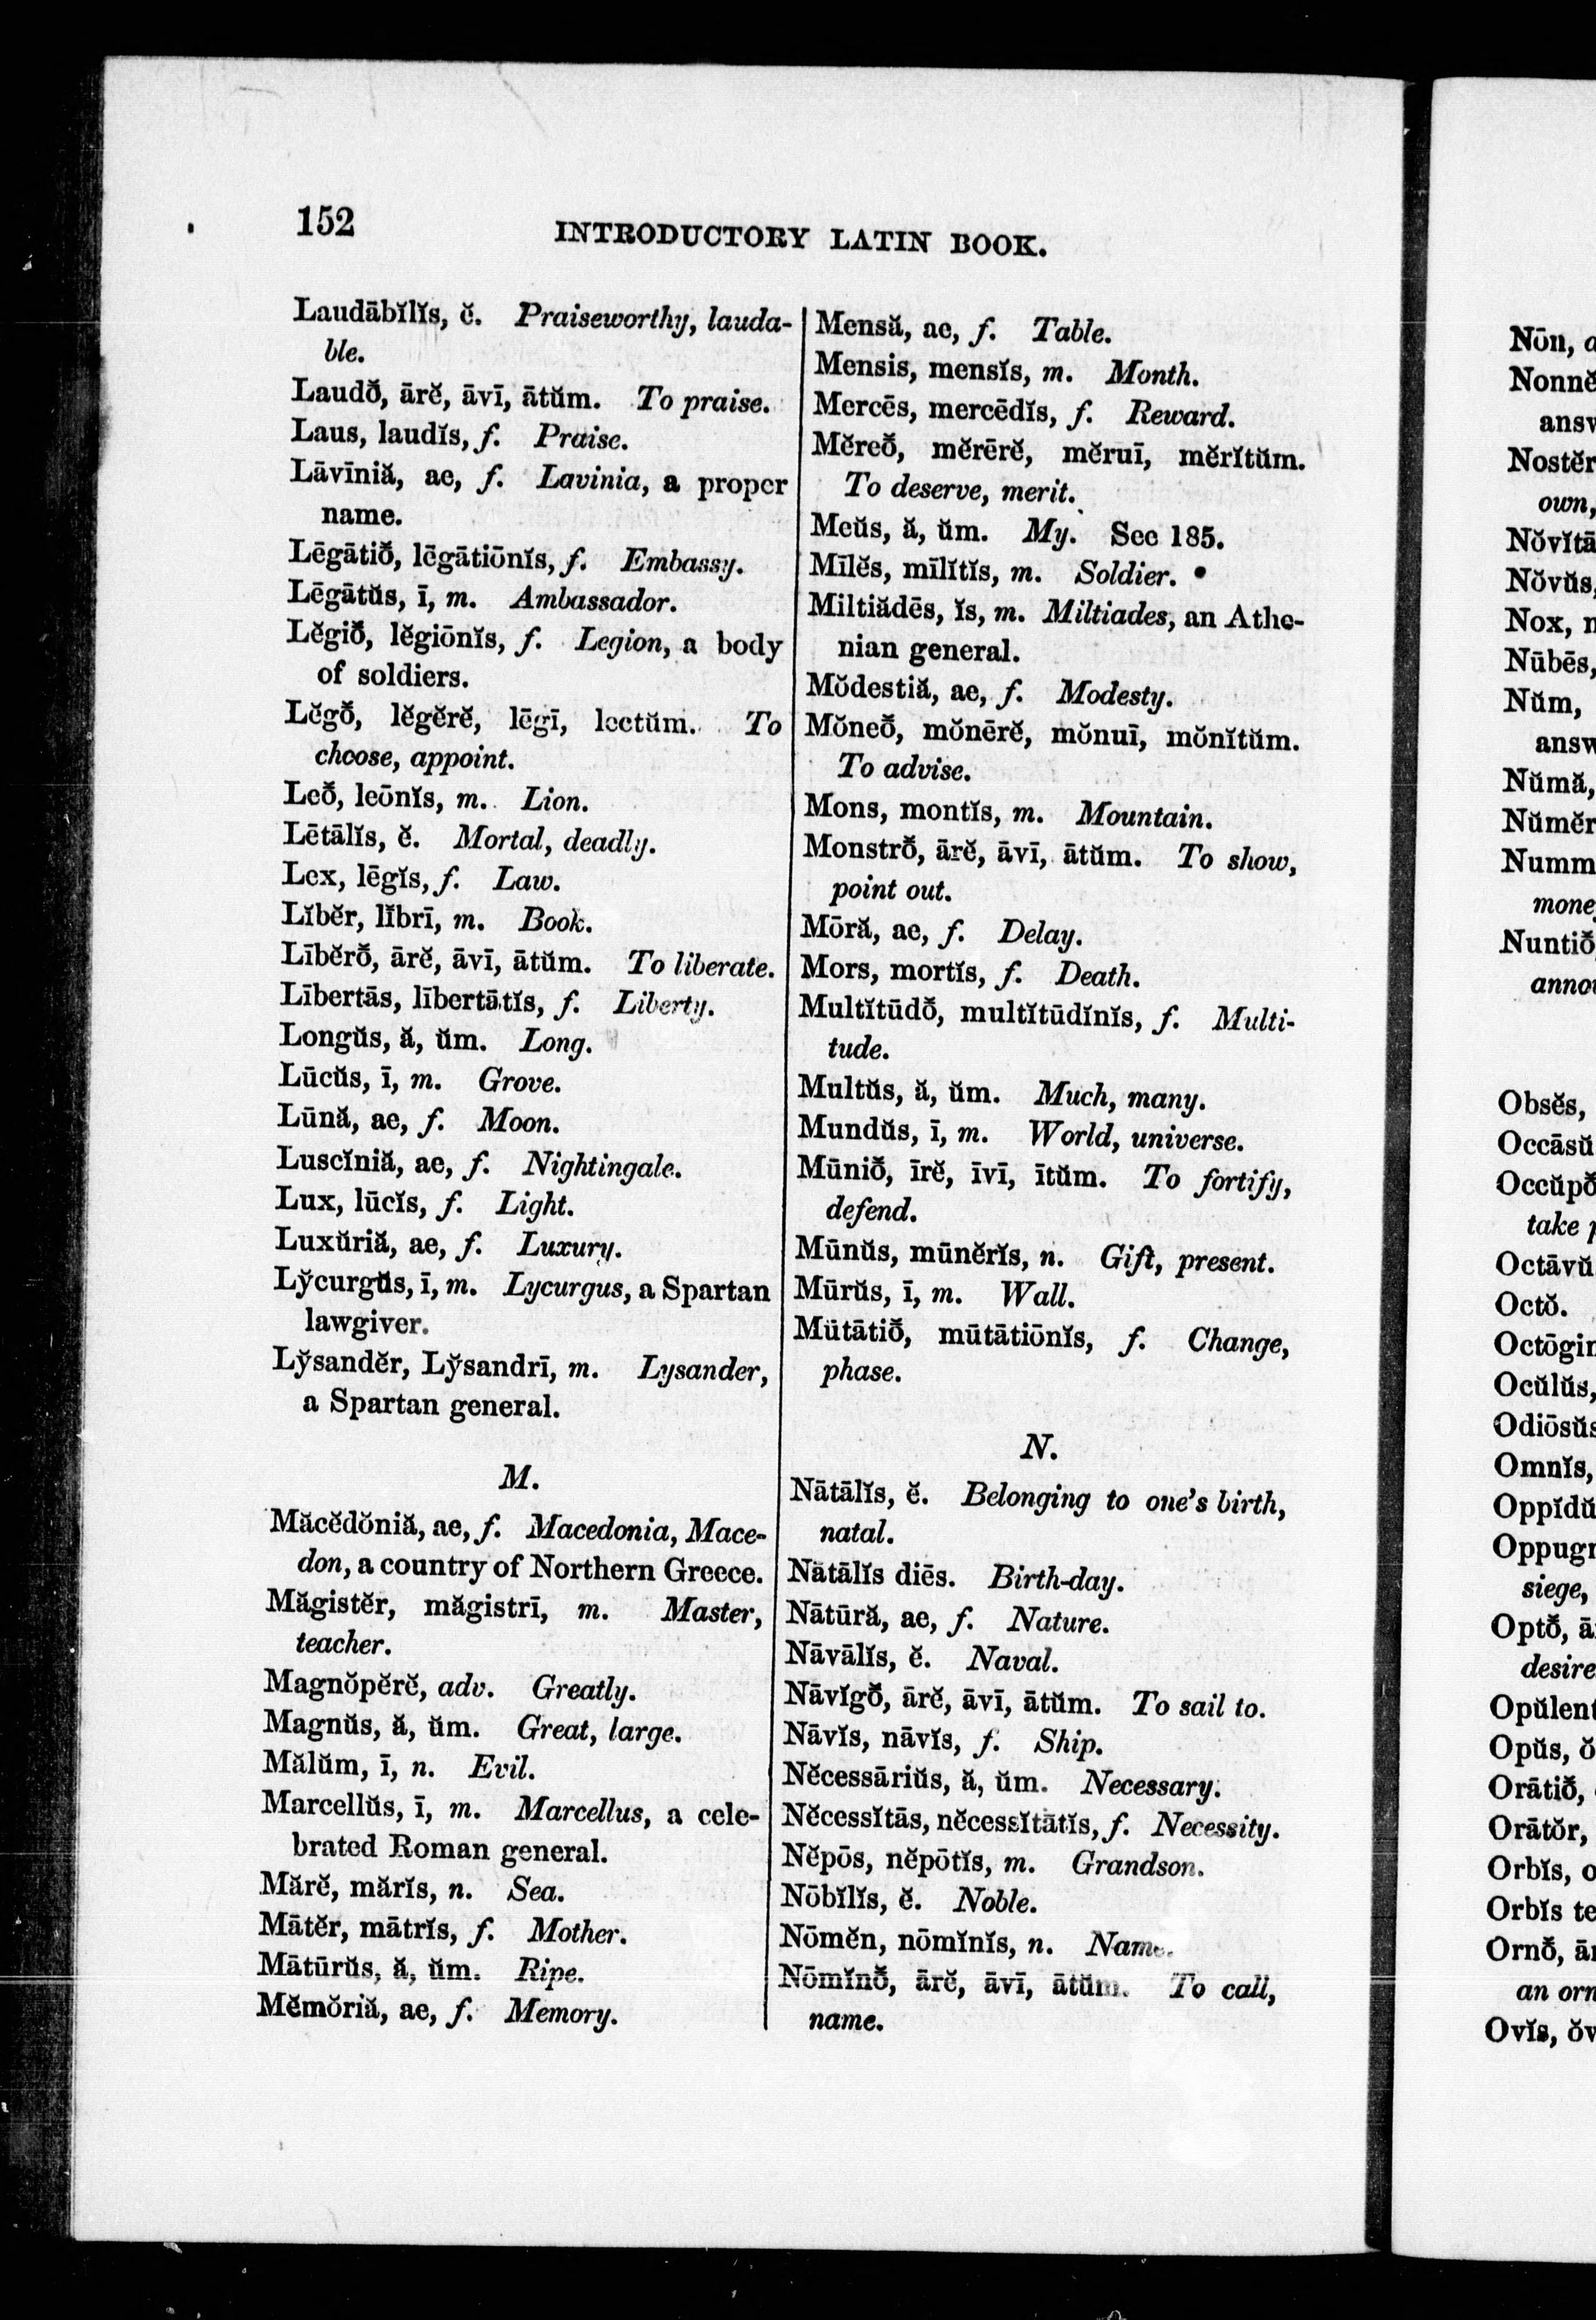 152
INTRODUCTORY LATIN BOOK.
Laudābĭlĭs, ĕ. Praiseworthy, lauda-
ble.
Laudŏ̄, ārĕ, āvī, ātŭm. To praise.
Laus, laudĭs, f. Praise.
Lāvīniă, ae, f. Lavinia, a proper
name.
Lēgātiŏ̄, lēgātiōnĭs, f. Embassy.
Lēgātŭs, ī, m. Ambassador.
Lĕgiŏ̄, lĕgiōnĭs, f. Legion, a body
of soldiers.
Lĕgŏ̄, lĕgĕrĕ, lēgī, lectŭm. To
choose, appoint.
Leŏ̄, leōnĭs, m. Lion.
Lētālĭs, ĕ. Mortal, deadly.
Lex, lēgĭs, f. Law.
Lĭbĕr, lĭbrī, m. Book.
Lībĕrŏ̄, ārĕ, āvī, ātŭm. To liberate.
Lībertās, lībertātĭs, f. Liberty.
Longŭs, ă, ŭm. Long.
Lūcŭs, ī, m. Grove.
Lūnă, ae, f. Moon.
Luscĭniă, ae, f. Nightingale.
Lux, lūcĭs, f. Light.
Luxŭriă, ae, f. Luxury.
Ly̆curgŭs, ī, m. Lycurgus, a Spartan
lawgiver.
Ly̆sandĕr, Ly̆sandrī, m. Lysander,
a Spartan general.
M.
Măcĕdŏniă, ae, f. Macedonia, Mace-
don, a country of Northern Greece.
Măgistĕr, măgistrī, m. Master,
teacher.
Magnŏpĕrĕ, adv. Greatly.
Magnŭs, ă, ŭm. Great, large.
Mălŭm, ī, n. Evil.
Marcellŭs, ī, m. Marcellus, a cele-
brated Roman general.
Mărĕ, mărĭs, n. Sea.
Mātĕr, mātrĭs, f. Mother.
Mātūrŭs, ă, ŭm. Ripe.
Mĕmŏriă, ae, f. Memory.
Mensă, ae, f. Table.
Mensis, mensĭs, m. Month.
Mercēs, mercēdĭs, f. Reward.
Mĕreŏ̄, mĕrērĕ, mĕruī, mĕrĭtŭm.
To deserve, merit.
Meŭs, ă, ŭm. My. See 185.
Mīlĕs, mīlĭtĭs, m. Soldier.
Miltiădēs, ĭs, m. Miltiades, an Athe-
nian general.
Mŏdestiă, ae, f. Modesty.
Mŏneŏ̄, mŏnērĕ, mŏnuī, mŏnĭtŭm.
To advise.
Mons, montĭs, m. Mountain.
Monstrŏ̄, ārĕ, āvī, ātŭm. To show,
point out.
Mōră, ae, f. Delay.
Mors, mortĭs, f. Death.
Multĭtūdŏ̄, multĭtūdĭnĭs, f. Multi-
tude.
Multŭs, ă, ŭm. Much, many.
Mundŭs, ī, m. World, universe.
Mūniŏ̄, īrĕ, īvī, ītŭm. To fortify,
defend.
Mūnŭs, mūnĕrĭs, n. Gift, present.
Mūrŭs, ī, m. Wall.
Mūtātiŏ̄, mūtātiōnĭs, f. Change,
phase.
N.
Nātālĭs, ĕ. Belonging to one's birth,
natal.
Nātālĭs diēs. Birth-day.
Nātūră, ae, f. Nature.
Nāvālĭs, ĕ. Naval.
Nāvĭgŏ̄, ārĕ, āvī, ātŭm. To sail to.
Nāvĭs, nāvĭs, f. Ship.
Nĕcessāriŭs, ă, ŭm. Necessary.
Nĕcessĭtās, nĕcessĭtātĭs, f. Necessity.
Nĕpōs, nĕpōtĭs, m. Grandson.
Nōbĭlĭs, ĕ. Noble.
Nōmĕn, nōmĭnĭs, n. Name.
Nōmĭnŏ̄, ārĕ, āvī, ātŭm. To call,
name.
Nōn,
Nonnĕ
answ
Nostĕr
own,
Nŏvĭtā
Nŏvŭs,
Nox, n
Nūbēs,
Nŭm,
answ
Nŭmă,
Nŭmĕr
Numm
mone
Nuntiŏ̄
anno
Obsĕs,
Occāsŭ
Occŭpŏ̄
take
Octāvŭ
Octŏ.
Octōgin
Ocŭlŭs,
Odiōsŭs
Omnĭs,
Oppĭdŭ
Oppugn
siege,
Optŏ̄, ā
desire
Opŭlent
Opŭs, ŏ
Orātiŏ̄,
Orātŏr,
Orbĭs, o
Orbĭs te
Ornŏ̄, ār
an orn
Ovĭs, ŏv